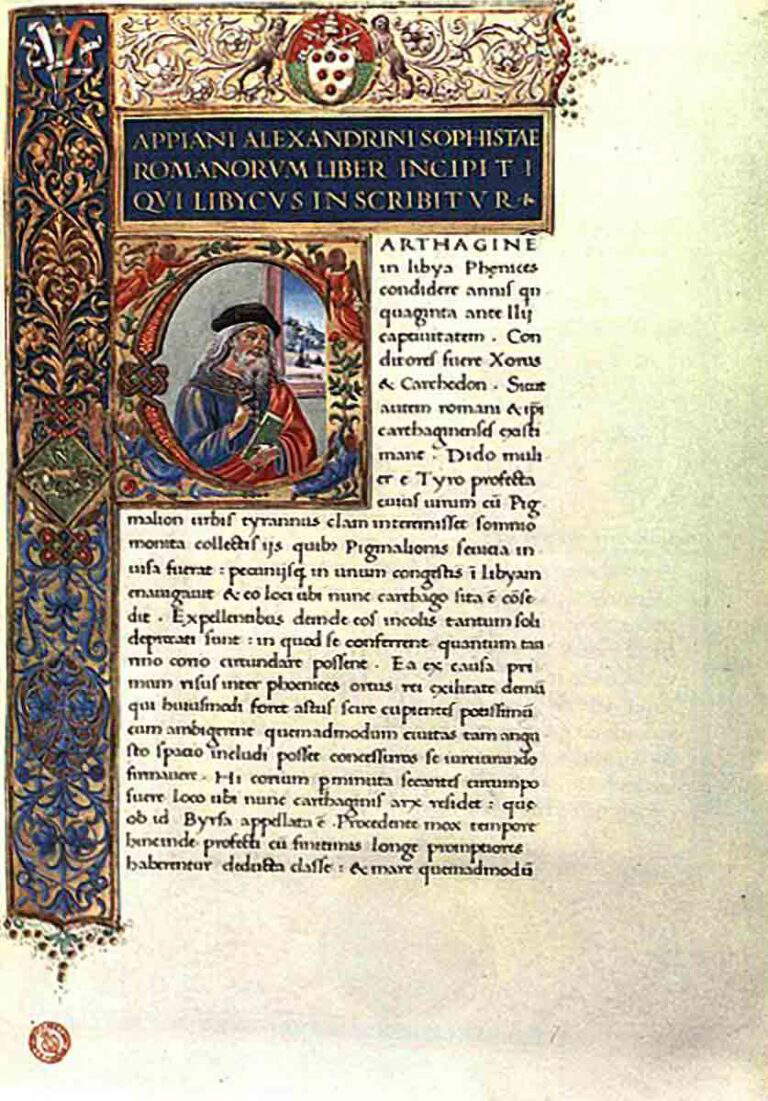 APPIANI ALEXANDRINI SOPHISTAE
ROMANORVM LIBER INCIPIT I
QVI LIBYCVS INSCRIBITVR
CARTHAGINE
in libya Phęnices
condidere annis qn
quaginta ante Ilij
captiuitatem . Con
ditores fuere Xorus
& Carchedon . Sicut
autem romani & ipi
carthaginenses existi
mant . Dido muli
er e Tyro profecta
cuius uirum cũ Pig
malion urbis tyrannus clam interemisset somnio
monita collectis ijs quibꝫ Pigmalionis seuitia in
uisa fuerat : pecunijsq in unum congestis ĩ libyam
enauigauit & eo loci ubi nunc carthago sita ẽ cõse
dit . Expellentibus deinde eos incolis tantum soli
deprecati sunt : in quod se conferrent quantum tau
rino corio circundare possent . Ea ex causa pri
mum risus inter phoenices ortus rei exilitate demũ
qui huiusmodi foret astus scire cupientes potissimũ
cum ambigerent quemadmodum ciuitas tam angu
sto spacio includi posset concessuros se iureiurando
firmauere . Hi corium pminuta secantes circumpo
suere loco ubi nunc carthaginis arx residet : quę
ob id Byrsa appellata ẽ . Procedente mox tempore
hincinde profecti cũ finitimis longe promptiores
haberentur deducta classe : & mare quemadmodũ